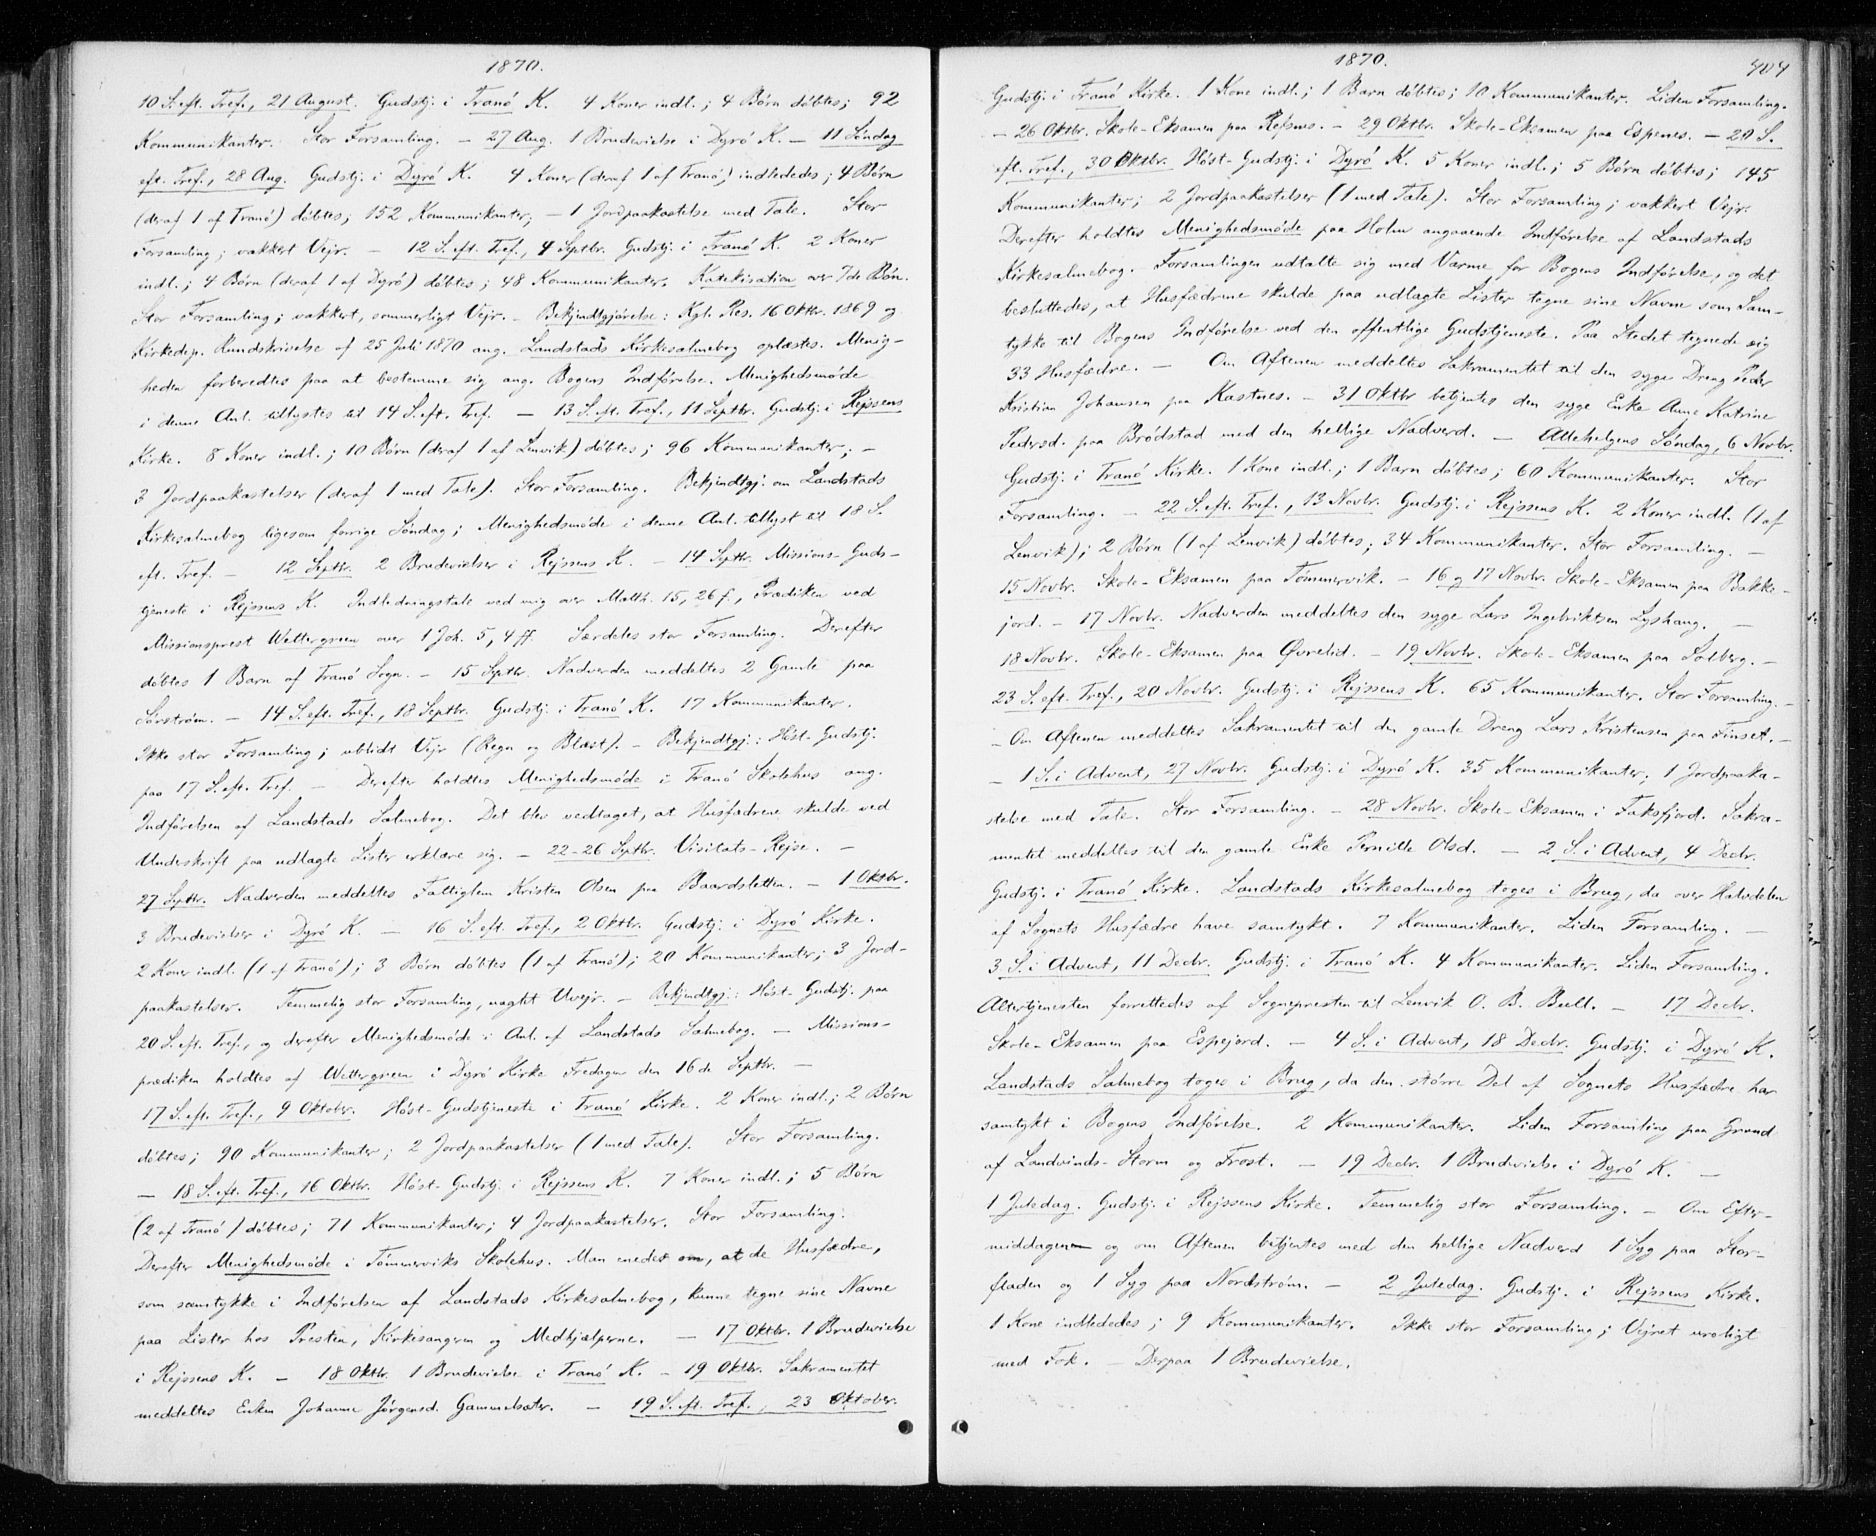 1870.
10 S. eft. Tref., 21 August. Gudstj. i Tranö K. 4 Koner indl.; 4 Börn döbtes; 92
Kommunikanter. Stor Forsamling. – 27 Aug. 1 Brudevielse i Dyrö K. – 11 Söndag
eft. Tref., 28 Aug. Gudstj. i Dyrö K. 4 Koner (deraf 1 af Tranö) indlededes; 4 Börn
(deraf 1 af Tranö) döbtes; 152 Kommunikanter; – 1 Jordpaakastelse med Tale. Stor
Forsamling; vakkert Vejr. – 12 S. eft. Tref., 4 Septbr. Gudstj. i Tranö K. 2 Koner
indl.; 4 Börn (deraf 1 af Dyrö) döbtes; 48 Kommunikanter. Katekisation over 7de Bön.
Stor Forsamling; vakkert, sommerligt Vejr. – Bekjendtgjörelse: Kgl. Res. 16 Oktbr. 1869 og
Kirkedep. Rundskrivelse af 25 Juli 1870 ang. Landstads Kirkesalmebog oplæstes. Menig-
heden forberedtes paa at bestemme sig ang. Bogens Indförelse. Menighedsmöde
i denne Anl. tillystes til 14 S. eft. Tref. – 13 S. eft. Tref., 11 Septbr. Gudstj. i Rejsens
Kirke. 8 Koner indl.; 10 Börn (deraf 1 af Lenvik) döbtes; 96 Kommunikanter; –
3 Jordpaakastelser (deraf 1 med Tale). Stor Forsamling. Bekjendtgj. om Landstads
Kirkesalmebog ligesom forrige Söndag; Menighedsmöde i denne Anl. tillyst til 18 S.
eft. Tref. – 12 Septbr. 2 Brudevielser i Rejssens K. – 14 Septbr. Missions-Guds-
tjeneste i Rejssens K. Indledningstale ved mig over Matth. 15, 26 f., Prædiken ved
Missionsprest Wettergreen over 1 Joh. 5, 4 ff. Særdeles stor Forsamling. Derefter
döbtes 1 Barn af Tranö Sogn. – 15 Septbr. Nadverden meddeltes 2 Gamle paa
Sörström. – 14 S. eft. Tref., 18 Septbr. Gudstj. i Tranö K. 17 Kommunikanter.
Ikke stor Forsamling; ublidt Vejr (Regn og Blæst). – Bekjendtgj.: Höst-Gudstj.
paa 17 S. eft. Tref. – Derefter holdtes Menighedsmöde i Tranö Skolehus ang.
Indförelsen af Landstads Salmebog. Det blev vedtaget, at Husfædrene skulde ved
Underskrift paa udlagte Lister erklære sig. – 22-26 Septbr. Visitats-Rejse. –
27 Septbr. Nadverden meddeltes Fattiglem Kristen Olsen paa Baardsletten. – 1 Oktbr.
3 Brudevielser i Dyrö K. – 16 S. eft. Tref., 2 Oktbr. Gudstj. i Dyrö Kirke.
2 Koner indl. (1 af Tranö); 3 Börn döbtes (1 af Tranö); 20 Kommunikanter; 3 Jord-
paakastelser. Temmelig stor Forsamling, uagtet Uvejr. – Bekjendtgj.: Höst-Gudstj. paa
20 S. eft. Tref., og derefter Menighedsmöde i Anl. af Landstads Salmebog. – Missions-
prædiken holdtes af Wettergreen i Dyrö Kirke Fredagen den 16de Septbr. –
17 S. eft. Tref., 9 Oktober. Höst-Gudstjeneste i Tranö Kirke. 2 Koner indl.; 2 Börn
döbtes; 90 Kommunikanter; 2 Jordpaakastelser (1 med Tale). Stor Forsamling.
– 18 S. eft. Tref., 16 Oktbr. Höst-Gudstj. i Rejssens K. 7 Koner indl.; 5 Börn
(2 af Tranö) döbtes; 71 Kommunikanter; 4 Jordpaakastelser. Stor Forsamling.
Derefter Menighedsmöde i Tömmerviks Skolehus. Man enedes om, at de Husfædre,
som samtykke i Indförelsen af Landstads Kirkesalmebog, kunne tegne sine Navne
paa Lister hos Presten, Kirkesangeren og Medhjælperne. – 17 Oktbr. 1 Brudevielse
i Rejssens K. – 18 Oktbr. 1 Brudevielse i Tranö K. – 19 Oktbr. Sakramentet
meddeltes Enken Johanne Jörgensd. Gammelsæter. – 19 S. eft. Tref., 23 Oktober.
1870.
404
Gudstj. i Tranö Kirke. 1 Kone indl.; 1 Barn döbtes; 10 Kommunikanter. Liden Forsamling.
– 26 Oktbr. Skole-Eksamen paa Rejsnes. – 29 Oktbr. Skole-Eksamen paa Espenes. – 20 S.
eft. Tref., 30 Oktbr. Höst-Gudstj. i Dyrö K. 5 Koner indl.; 5 Börn döbtes; 145
Kommunikanter; 2 Jordpaakastelser (1 med Tale). Stor Forsamling; vakkert Vejr.
Derefter holdtes Menighedsmöde paa Holm angaaende Indförelse af Landstads
Kirkesalmebog. Forsamlingen udtalte sig med Varme for Bogens Indförelse, og det
besluttedes, at Husfædrene skulde paa udlagte Lister tegne sine Navne som Sam-
tykke til Bogens Indförelse ved den offentlige Gudstjeneste. Paa Stedet tegnede sig
33 Husfædre. – Om Aftenen meddeltes Sakramentet til den syge Dreng Peder
Kristian Johansen paa Kastnes. – 31 Oktbr betjentes den syge Enke Anne Katrine
Pedersd. paa Brödstad med den hellige Nadverd. – Allehelgens Söndag, 6 Novbr.
Gudstj. i Tranö Kirke. 1 Kone indl.; 1 Barn döbtes; 60 Kommunikanter. Stor
Forsamling. – 22 S. eft. Tref., 13 Novbr. Gudstj. i Rejssens K. 2 Koner indl. (1 af
Lenvik); 2 Börn (1 af Lenvik) döbtes; 34 Kommunikanter. Stor Forsamling. –
15 Novbr. Skole-Eksamen paa Tömmervik. – 16 og 17 Novbr. Skole-Eksamen paa Bakke-
jord. – 17 Novbr. Nadverden meddeltes den syge Lars Ingebriktsen Lyshaug. –
18 Novbr. Skole-Eksamen paa Øvrelid. – 19 Novbr. Skole-Eksamen paa Solberg. –
23 S. eft. Tref., 20 Novbr. Gudstj. i Rejssens K. 65 Kommunikanter. Stor Forsamling. –
– Om Aftenen meddeltes Sakramentet til den gamle Dreng Lars Kristensen paa Finset. –
– 1 S. i Advent, 27 Novbr. Gudstj. i Dyrö K. 35 Kommunikanter. 1 Jordpaaka-
stelse med Tale. Stor Forsamling. – 28 Novbr. Skole-Eksamen i Faksfjord. Sakra-
mentet meddeltes til den gamle Enke Pernille Olsd. – 2 S. i Advent, 4 Decbr.
Gudstj. i Tranö Kirke. Landstads Kirkesalmebog toges i Brug, da over Halvdelen
af Sognets Husfædre have samtykt. 7 Kommunikanter. Liden Forsamling. –
3 S. i Advent, 11 Decbr. Gudstj. i Tranö K. 4 Kommunikanter. Liden Forsamling.
Altertjenesten forrettedes af Sognepresten til Lenvik O. B. Bull. – 17 Decbr.
Skole-Eksamen paa Espejord. – 4 S. i Advent, 18 Decbr. Gudstj. i Dyrö K.
Landstads Salmebog toges i Brug, da den större Del af Sognets Husfædre har
samtykt i Bogens Indförelse. 2 Kommunikanter. Liden Forsamling paa Grund
af Landvinds-Storm og Frost. – 19 Decbr. 1 Brudevielse i Dyrö K. –
1 Juledag. Gudstj. i Rejssens Kirke. Temmelig stor Forsamling. – Om Efter-
middagen og om Aftenen betjentes med den hellige Nadverd 1 Syg paa Stor-
fladen og 1 Syg paa Nordström. – 2 Juledag. Gudstj. i Rejssens Kirke.
1 Kone indlededes; 9 Kommunikanter. Ikke stor Forsamling; Vejret uroligt
med Fok. – Derpaa 1 Brudevielse.